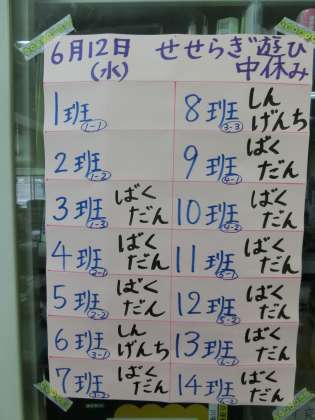 6月12日 せせらぎ遊び
(水) 中休み
1班 1-1
2班 1-2
3班 1-3 ばくだん
4班 2-1 ばくだん
5班 2-2 ばくだん
6班 3-1 しんげんち
7班 3-2 ばくだん
8班 3-3 しんげんち
9班 4-1 ばくだん
10班 4-2 ばくだん
11班 5-1 ばくだん
12班 5-2 ばくだん
13班 6-1 ばくだん
14班 6-2 ばくだん